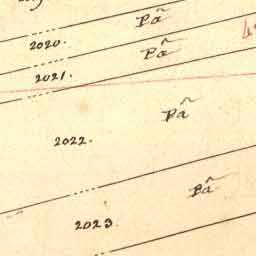 Pã
2020.
Pã
2021.
Pã
2022.
Pã
2023